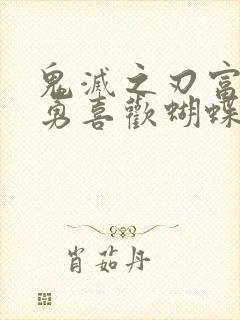 鬼滅之刃富
勇喜歡蝴蝶
肖茹丹